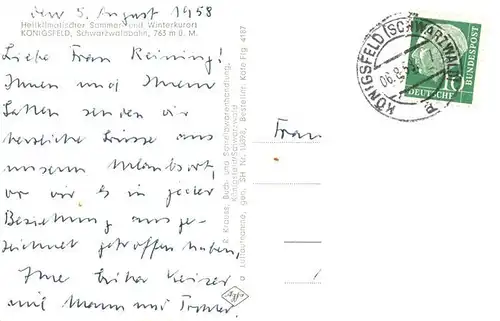 den 5. August 1958
Heilklimatischer Sommer- und Winterkurort
KÖNIGSFELD, Schwarzwaldbahn, 763 m ü. M.
Liebe Frau Reining!
Ihnen und Ihrem
senden wir
herzliche Grüsse aus
unserem Urlaubsort,
wo wir es in jeder
Beziehung ausge-
zeichnet getroffen haben,
Ihre Keiser
mit Mann und Tochter.
R. Krauss, Buch- und Schreibwarenhandlung,
Königsfeld/Schwarzwald
Luftaufnahme, gen. Bestellnr. Kate Flg 4187
Frau
KÖNIGSFELD (SCHWARZWALD)
06.8.58
DEUTSCHE BUNDESPOST
10